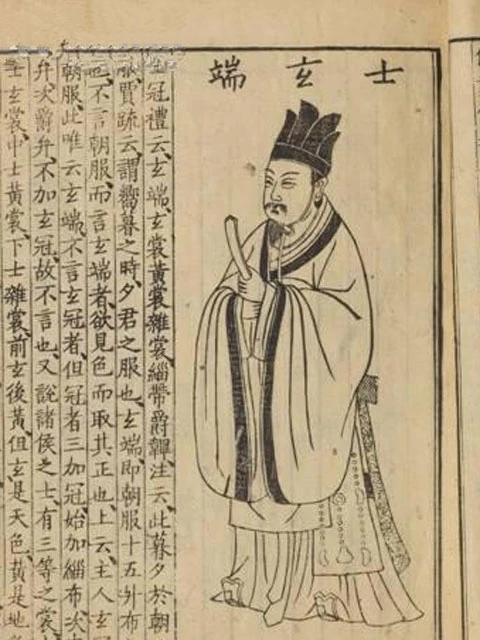 士玄端
士冠禮云玄端玄裳黃裳雜裳緇帶爵韠注云此暮夕於朝
服賈疏云謂嚮暮之時夕君之服也玄端即朝服十五升布
也不言朝服而言玄端者欲見色而取其正也上云主人玄
朝服此唯云玄端不言玄冠者但冠者三加冠始加緇布次
弁次爵弁不加玄冠故不言也又說諸侯之士有三等之裳
士玄裳中士黃裳下士雜裳前玄後黃但玄是天色黃是地